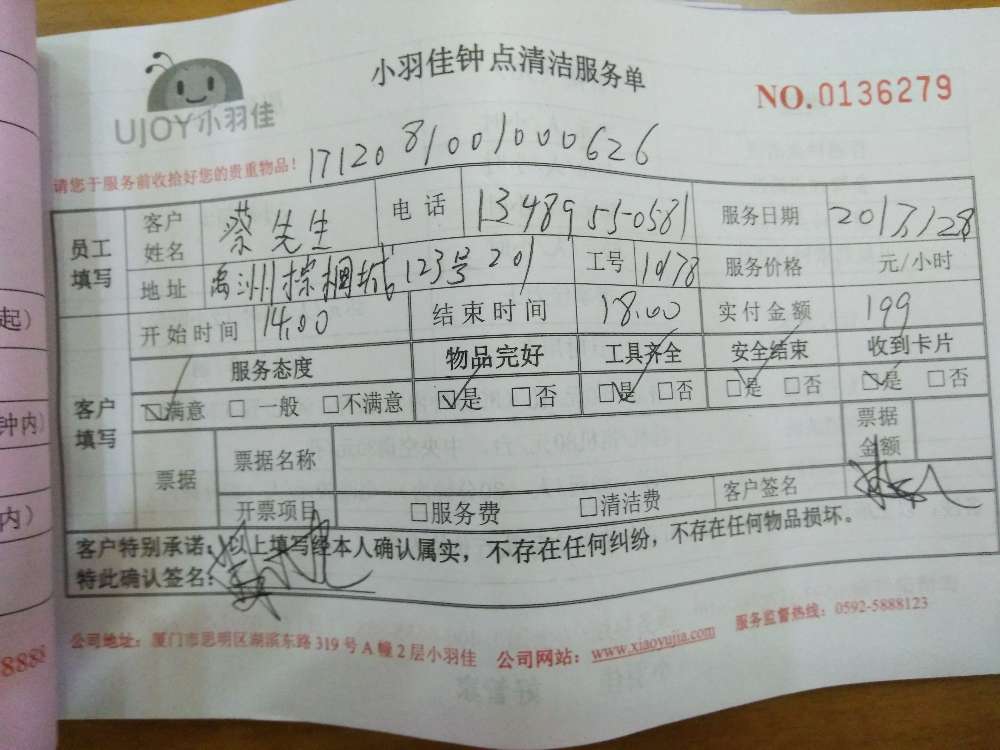 小羽佳钟点清洁服务单
NO.0136279
UJOY小羽佳
请您于服务前收拾好您的贵重物品!
1712081001000626
员工填写 客户姓名 蔡先生 电话 13489550581 服务日期
地址 禹洲棕榈城123号201 工号 10178 服务价格 元/小时
客户填写 开始时间 14:00 结束时间 18:00 实付金额 199
服务态度 物品完好 工具齐全 安全结束 收到卡片
☑满意 □一般 □不满意 ☑是 □否 ☑是 □否 ☑是 □否 ☑是 □否
票据 票据名称 票据金额
开票项目 □服务费 □清洁费 客户签名
客户特别承诺:以上填写经本人确认属实,不存在任何纠纷,不存在任何物品损坏。
特此确认签名:
公司地址:厦门市思明区湖滨东路319号A幢2层小羽佳 公司网站:www.xiaoyujia.com 服务监督热线:0592-5888123
起)
钟内)
内)
8888